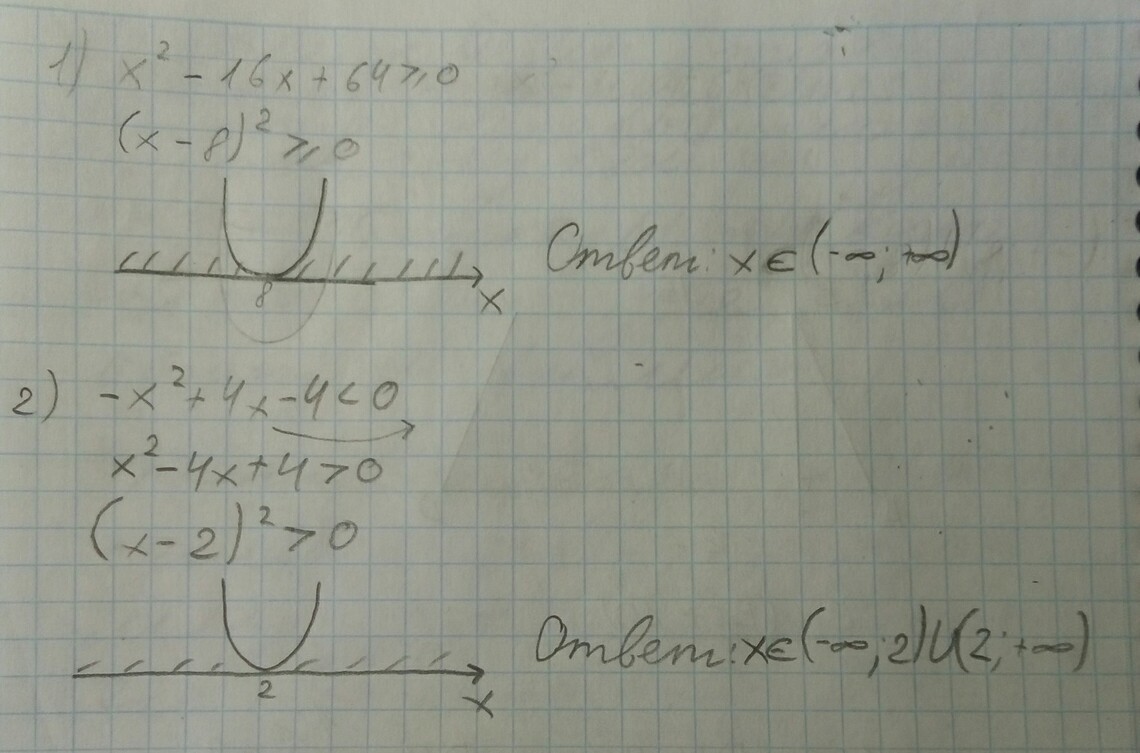 1) x² - 16x + 64 ⩾ 0
(x - 8)² ⩾ 0
8
x
Ответ: x ∈ (-∞; +∞)
2) -x² + 4x - 4 < 0
x² - 4x + 4 > 0
(x - 2)² > 0
2
x
Ответ: x ∈ (-∞; 2) U (2; +∞)